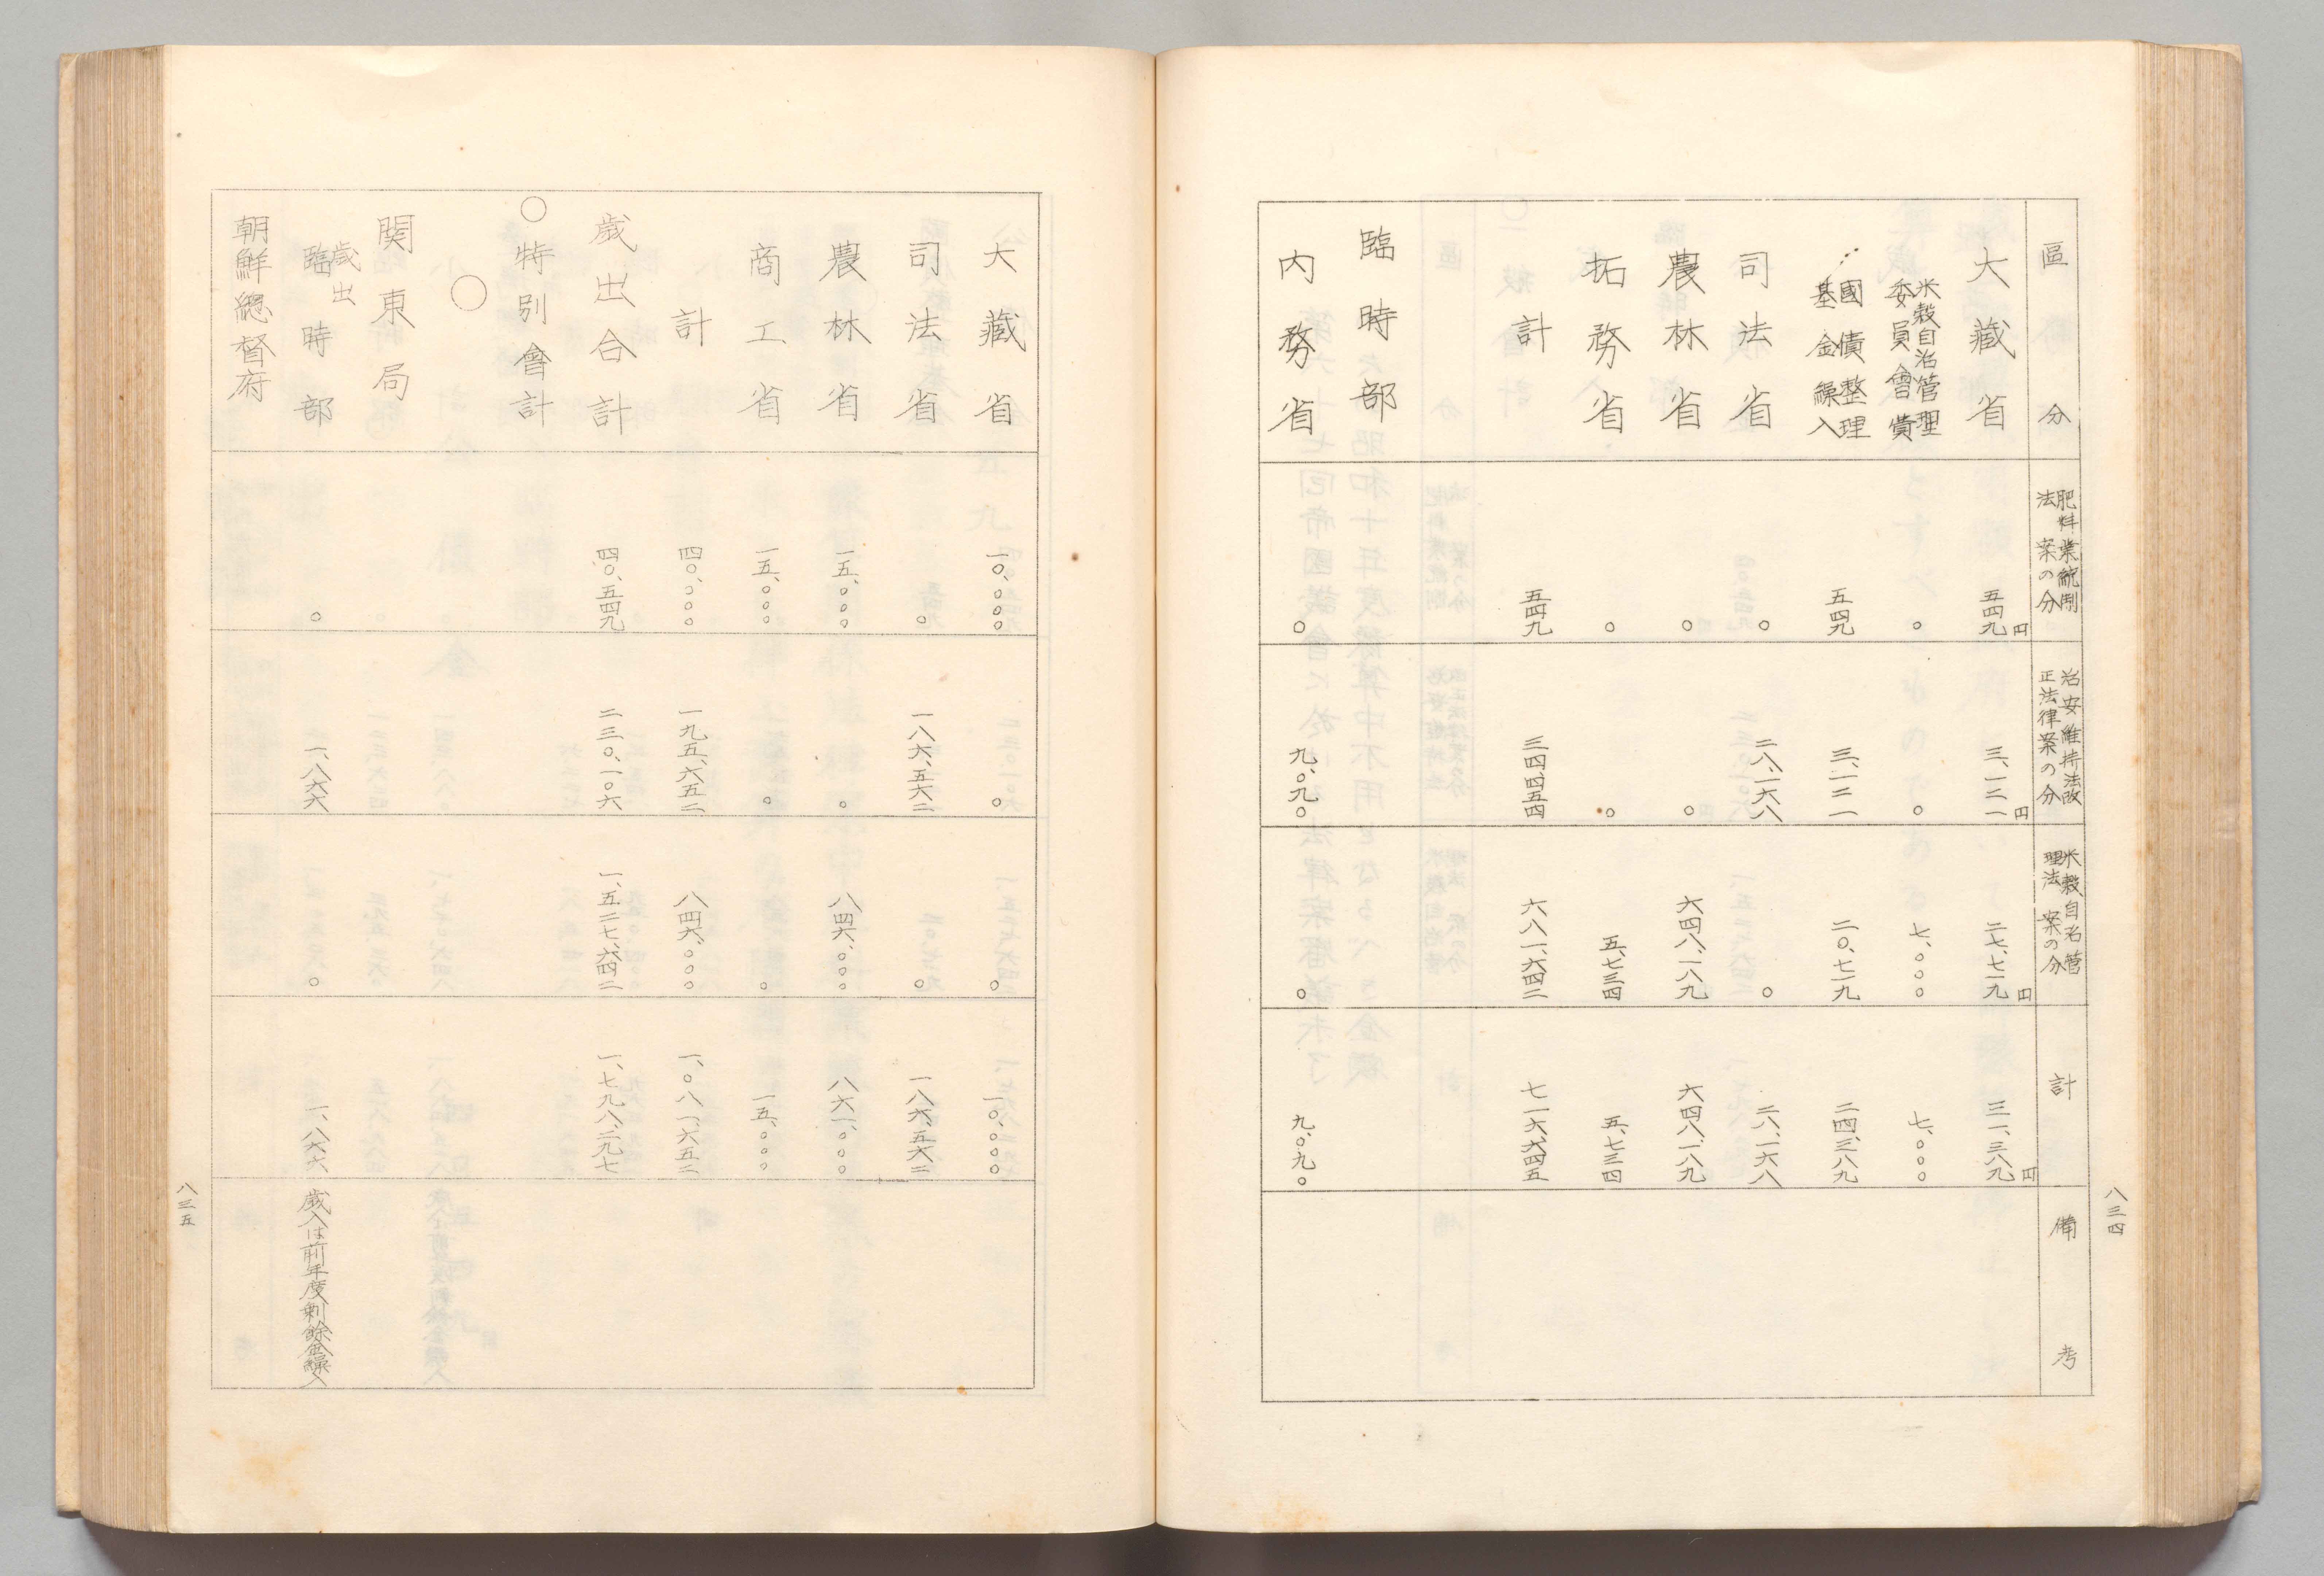 八三四
區分 肥料業統制法案の分 治安維持法改正法律案の分 米穀自治管理法案の分 計 備考
大藏省 五四九円 三、一二一円 二七、七一九円 三一、三八九円
米穀自治管理委員會費 〇 〇 七、〇〇〇 七、〇〇〇
國債整理基金繰入 五四九 三、一二一 二〇、七一九 二四、三八九
司法省 〇 二八、一六八 〇 二八、一六八
農林省 〇 〇 六四八、一八九 六四八、一八九
拓務省 〇 〇 五、七三四 五、七三四
計 五四九 三四、四五四 六八一、六四二 七一六、六四五
臨時部
内務省 〇 九、〇九〇 〇 九、〇九〇
大藏省 一〇、〇〇〇 〇 〇 一〇、〇〇〇
司法省 〇 一八六、五六二 〇 一八六、五六二
農林省 一五、〇〇〇 〇 八四六、〇〇〇 八六一、〇〇〇
商工省 一五、〇〇〇 〇 〇 一五、〇〇〇
計 四〇、〇〇〇 一九五、六五二 八四六、〇〇〇 一、〇八一、六五二
歳出合計 四〇、五四九 二三〇、一〇六 一、五二七、六四二 一、七九八、二九七
〇特別會計
〇
関東局
歳出臨時部 〇 一、八六六 〇 一、八六六 歳入は前年度剰餘金繰入
朝鮮總督府
八三五